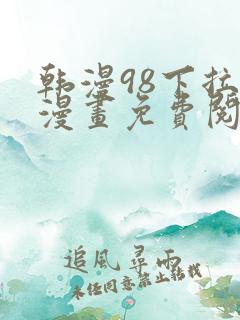 韩漫98下拉
漫畫免費閱
追風尋雨
未经同意禁止转载